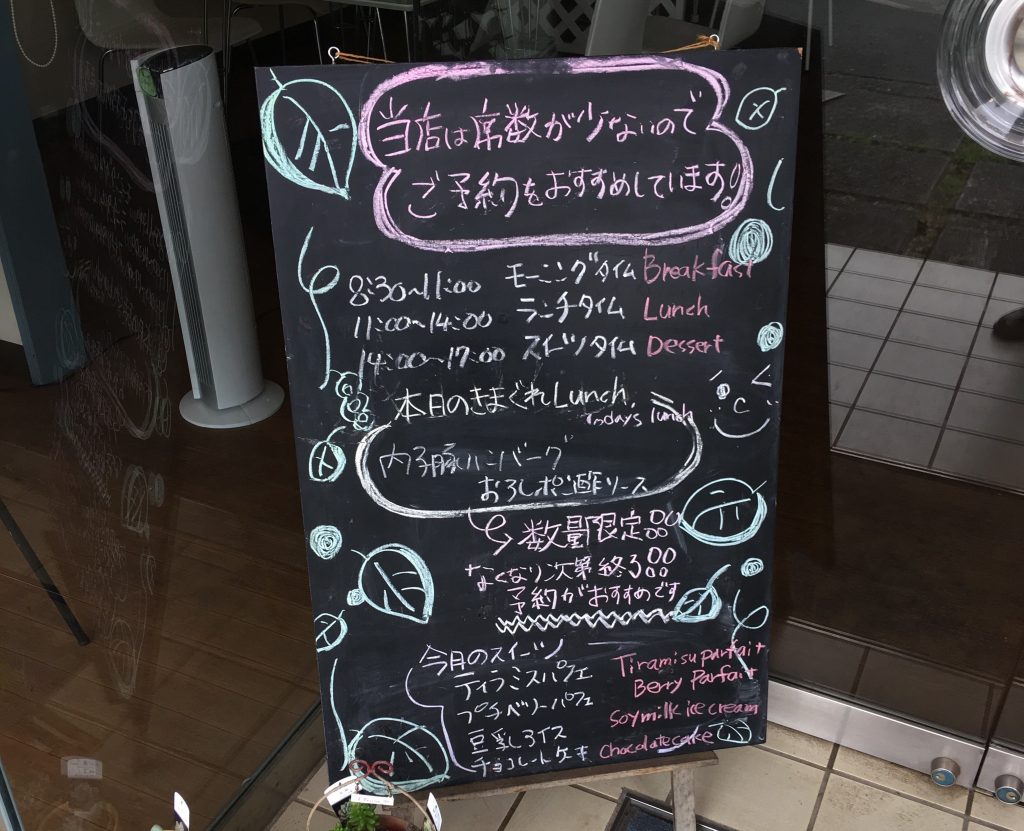 当店は席数が少ないので
ご予約をおすすめしています!
8:30~11:00 モーニングタイム Breakfast
11:00~14:00 ランチタイム Lunch
14:00~17:00 スイーツタイム Dessert
本日のきまぐれLunch
Todays lunch
内子豚ハンバーグ
おろしポン酢ソース
数量限定!!
なくなり次第終了!!
予約がおすすめです
今月のスイーツ
ティラミスパフェ Tiramisu parfait
プチベリーパフェ Berry Parfait
豆乳アイス Soymilk ice cream
チョコレートケーキ Chocolate cake